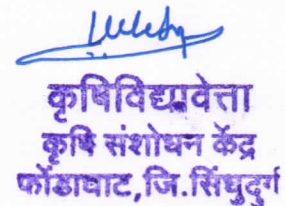 कृषिविद्यावेत्ता
कृषि संशोधन केंद्र
फोंडाघाट,जि.सिंधुदुर्ग